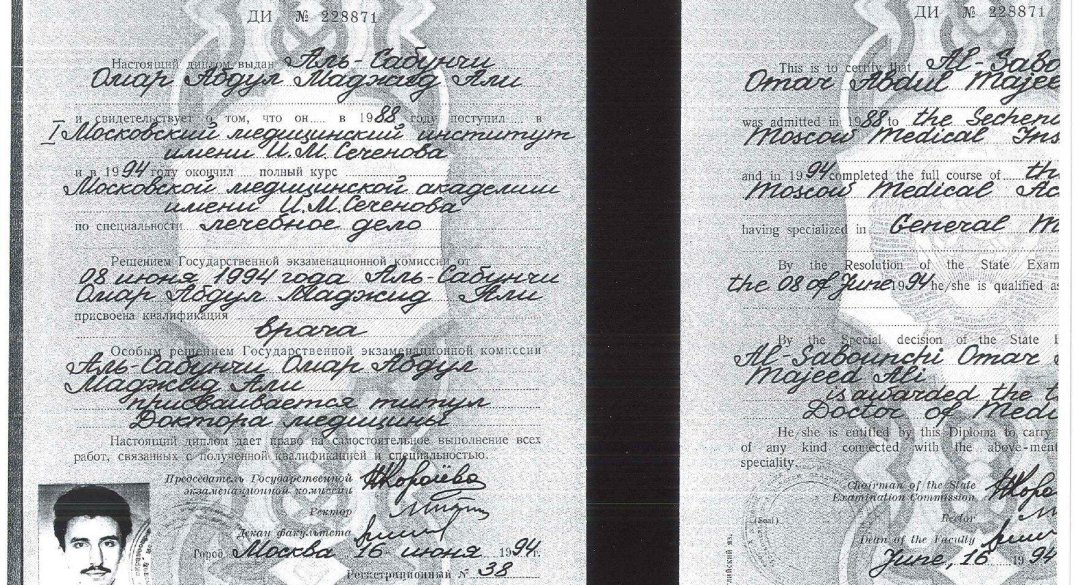 ДИ № 228871
Настоящий диплом выдан Аль-Сабунчи
Омар Абдул Маджид Али
и свидетельствует о том, что он в 1988 году поступил в
I Московский медицинский институт
имени И.М. Сеченова
и в 1994 году окончил полный курс
Московской медицинской академии
имени И.М. Сеченова
по специальности лечебное дело
Решением Государственной экзаменационной комиссии от
08 июня 1994 года Аль-Сабунчи
Омар Абдул Маджид Али
присвоена квалификация
врача
Особым решением Государственной экзаменационной комиссии
Аль-Сабунчи Омар Абдул
Маджид Али
присваивается титул
Доктора медицины
Настоящий диплом дает право на самостоятельное выполнение всех
работ, связанных с полученной квалификацией и специальностью.
Председатель Государственной
экзаменационной комиссии
Ректор
Декан факультета
Город Москва 16 июня 1994 г.
Регистрационный № 38
ДИ № 228871
This is to certify that Al-Sabo
Omar Abdul Majee
was admitted in 1988 to the Sechen
Moscow Medical Ins
and in 1994 completed the full course of th
Moscow Medical Ac
having specialized in General M
By the Resolution of the State Exam
the 08 of June 1994 he/she is qualified as
By the Special decision of the State E
Al-Sabounchi Omar
Majeed Ali
is awarded the t
Doctor of Medi
He/she is entitled by this Diploma to carry
of any kind connected with the above-ment
speciality.
Chairman of the State
Examination Commission
Rector
(Seal)
Dean of the Faculty
June, 16 1994